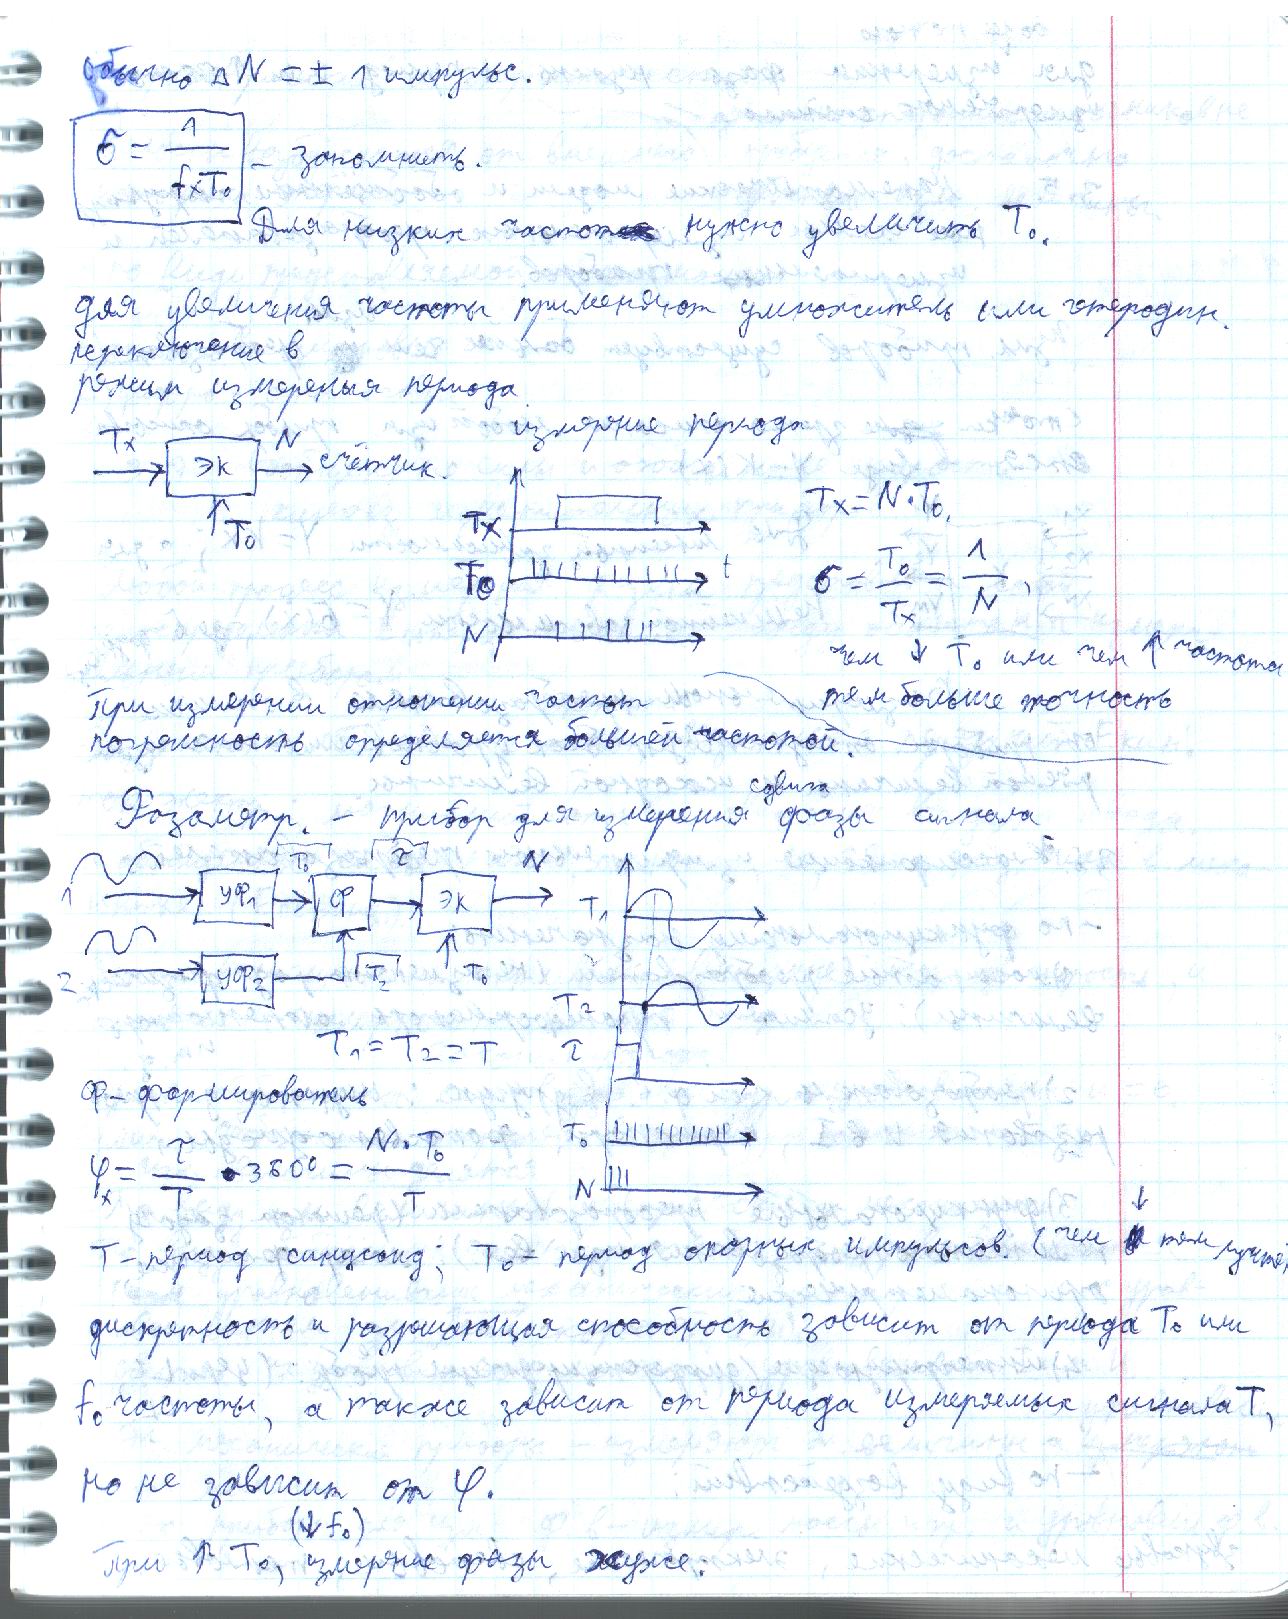 обычно ΔN = ± 1 импульс.
σ = 1 / fxT₀ – запомнить.
Для низких частот нужно увеличить T₀.
для увеличения частоты применяют умножитель или гетеродин.
переключение в
режим измерения периода
измерние периода
Tx ЭК N счётчик.
T₀
Tx
T₀ t
N
Tx = N·T₀,
σ = T₀ / Tx = 1 / N,
чем ↓ T₀ или чем ↑ частота
тем больше точность
При измерении отношении частот
погрешность определяется большей частотой.
Фазометр. – прибор для измерения сдвига фазы сигнала
1 УФ₁ T₀ Ф τ ЭК N
2 УФ₂ T₂ T₀
T₁ = T₂ = T
T₁
T₂
τ
T₀
N
Ф – формирователь
φx = τ / T • 360° = N·T₀ / T
T – период синусоид; T₀ – период опорных импульсов (чем ↓ тем лучше)
дискретность и разрешающая способность зависит от периода T₀ или
f₀ частоты, а также зависит от периода измеряемых сигнала T,
но не зависит от φ.
При ↑ T₀, (↓ f₀) измерние фазы хуже.